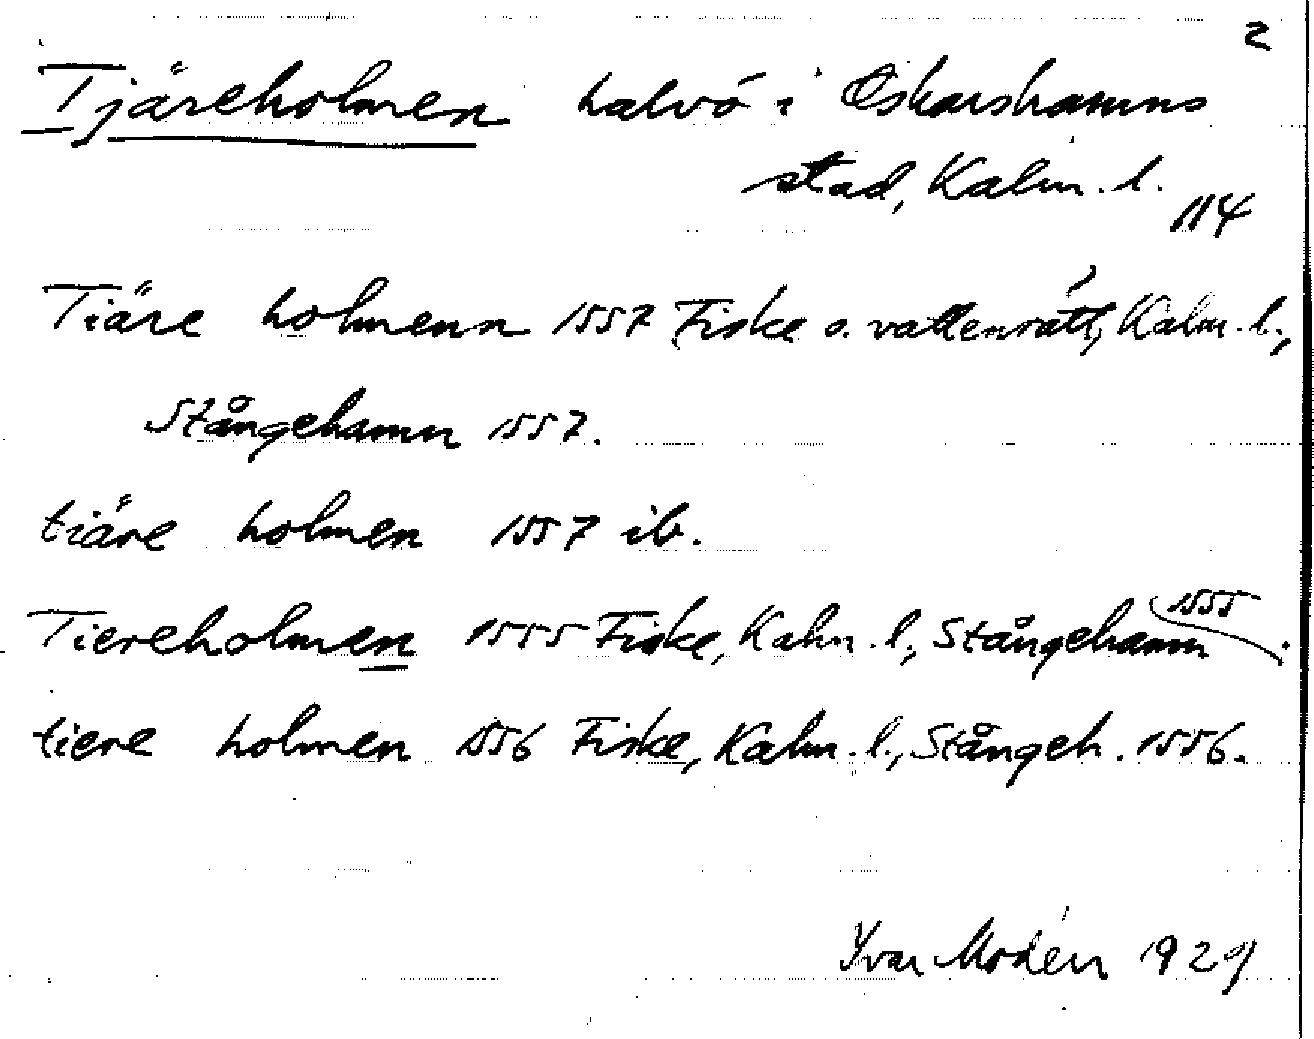 2
Tjäreholmen halvö i Oskarshamns
stad, Kalm. l.
114
Tiäre holmenn 1557 Fiske o. vattenrätt, Kalm. l.,
Stångehamn 1557.
tiäre holmen 1557 ib.
Tiereholmen 1555 Fiske, Kalm. l., Stångehamn 1555.
tiere holmen 1556 Fiske, Kalm. l., Stångeh. 1556.
Yvar Modén 1929